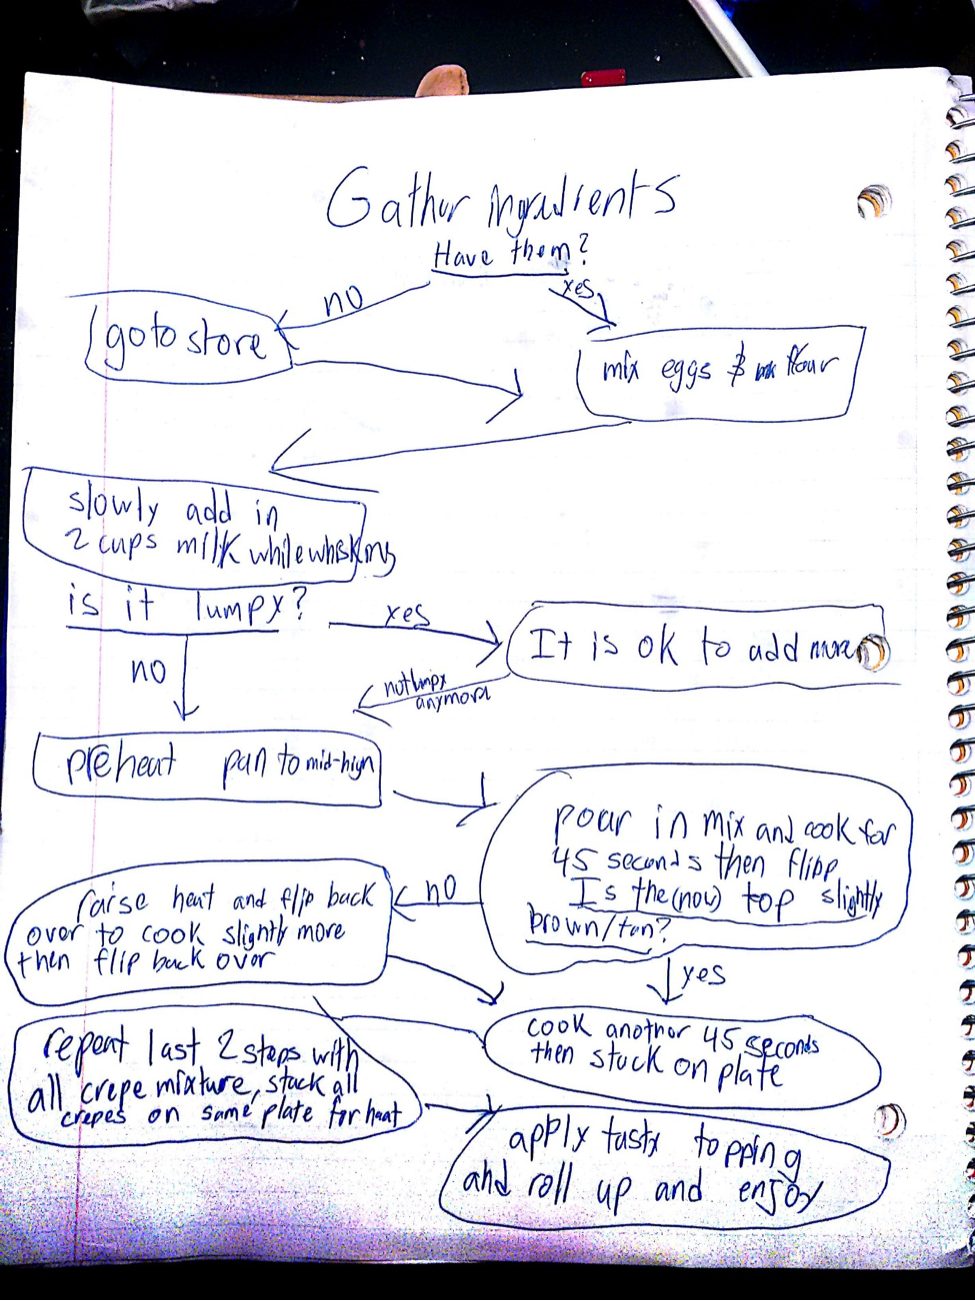 Gather ingredients
Have them?
no
yes
go to store
mix eggs & flour
slowly add in
2 cups milk while whisking
is it lumpy?
yes
It is ok to add more
no
not lmpy
anymore
preheat pan to mid-high
pour in mix and cook for
45 seconds then flipp
Is the (now) top slightly
brown/tan?
no
raise heat and flip back
over to cook slightly more
then flip back over
yes
cook another 45 seconds
then stack on plate
repeat last 2 steps with
all crepe mixture, stack all
crepes on same plate for heat
apply tasty topping
and roll up and enjoy